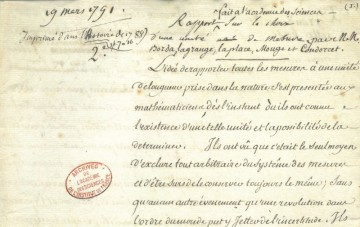 19 mars 1791.
fait à l'académie des Sciences
(1.)
Rapport sur le choix
Imprimé dans l'histoire de 1788
d'une unité de Mesure, par M.M.
2.° p. 7-16
Borda, lagrange, la place, Monge et Condorcet.
L'idée de rapporter toutes les mesures à une unité
de longueur prise dans la nature s'est présentée aux
mathématiciens dès l'instant où ils ont connu
l'existence d'une telle unité et la possibilité de la
déterminer. Ils ont vu que c'était le seul moyen
d'exclure tout arbitraire du Système des mesures
et d'être sûr de le conserver toujours le même, sans
qu'aucun autre événement qu'une révolution dans
l'ordre du monde put y jetter de l'incertitude. Ils
ARCHIVES
DE
L'ACADÉMIE
DES SCIENCES
DE L'INSTITUT DE FRANCE